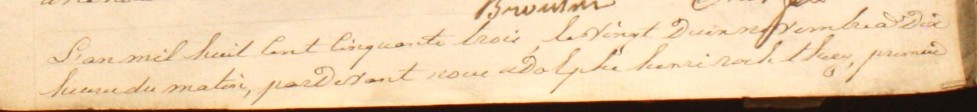 Broutin
L'an mil huit cent cinquante trois le vingt Deux novembre à Dix
heures du matin, pardevant nous adolphe henri roch they, premier